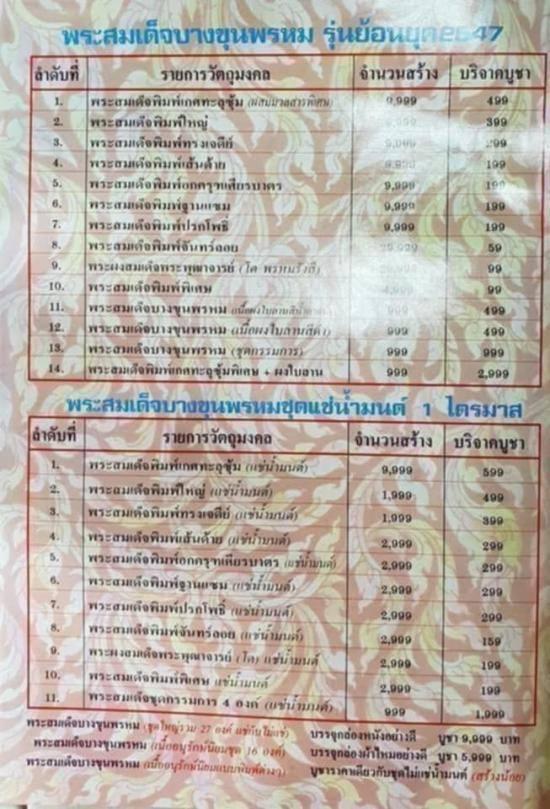 พระสมเด็จบางขุนพรหม รุ่นย้อนยุค2547
ลำดับที่ รายการวัตถุมงคล จำนวนสร้าง บริจาคบูชา
1. พระสมเด็จพิมพ์เกศทะลุซุ้ม (ผสมมวลสารพิเศษ) 9,999 499
2. พระสมเด็จพิมพ์ใหญ่ 399
3. พระสมเด็จพิมพ์ทรงเจดีย์ 299
4. พระสมเด็จพิมพ์เส้นด้าย 199
5. พระสมเด็จพิมพ์อกครุฑเศียรบาตร 9,999 199
6. พระสมเด็จพิมพ์ฐานแซม 9,999 199
7. พระสมเด็จพิมพ์ปรกโพธิ์ 9,999 199
8. พระสมเด็จพิมพ์จันทร์ลอย 59
9. พระผงสมเด็จพระพุฒาจารย์ (โต พรหมรังสี) 99
10. พระสมเด็จพิมพ์พิเศษ 99
11. พระสมเด็จบางขุนพรหม 999 499
12. พระสมเด็จบางขุนพรหม (เนื้อผงใบลานสีดำ) 999 499
13. พระสมเด็จบางขุนพรหม (ชุดกรรมการ) 999 999
14. พระสมเด็จพิมพ์เกศทะลุซุ้มพิเศษ + ผงใบลาน 999 2,999
พระสมเด็จบางขุนพรหมชุดแช่น้ำมนต์ 1 ไตรมาส
ลำดับที่ รายการวัตถุมงคล จำนวนสร้าง บริจาคบูชา
1. พระสมเด็จพิมพ์เกศทะลุซุ้ม (แช่น้ำมนต์) 9,999 599
2. พระสมเด็จพิมพ์ใหญ่ (แช่น้ำมนต์) 1,999 499
3. พระสมเด็จพิมพ์ทรงเจดีย์ (แช่น้ำมนต์) 1,999 399
4. พระสมเด็จพิมพ์เส้นด้าย (แช่น้ำมนต์) 2,999 299
5. พระสมเด็จพิมพ์อกครุฑเศียรบาตร (แช่น้ำมนต์) 2,999 299
6. พระสมเด็จพิมพ์ฐานแซม (แช่น้ำมนต์) 2,999 299
7. พระสมเด็จพิมพ์ปรกโพธิ์ (แช่น้ำมนต์) 2,999 299
8. พระสมเด็จพิมพ์จันทร์ลอย (แช่น้ำมนต์) 2,999 159
9. พระผงสมเด็จพระพุฒาจารย์ (โต) แช่น้ำมนต์ 2,999 199
10. พระสมเด็จพิมพ์พิเศษ แช่น้ำมนต์ 2,999 199
11. พระสมเด็จชุดกรรมการ 4 องค์ (แช่น้ำมนต์) 999 1,999
พระสมเด็จบางขุนพรหม (ชุดใหญ่รวม 27 องค์ แช่กับไม่แช่) บรรจุกล่องหนังอย่างดี บูชา 9,999 บาท
พระสมเด็จบางขุนพรหม (เนื้ออนุรักษ์นิยมชุด 16 องค์) บรรจุกล่องผ้าไหมอย่างดี บูชา 5,999 บาท
พระสมเด็จบางขุนพรหม (เนื้ออนุรักษ์นิยมแบบพิมพ์ต่างๆ) บูชาราคาเดียวกับชุดไม่แช่น้ำมนต์ (สร้างน้อย)